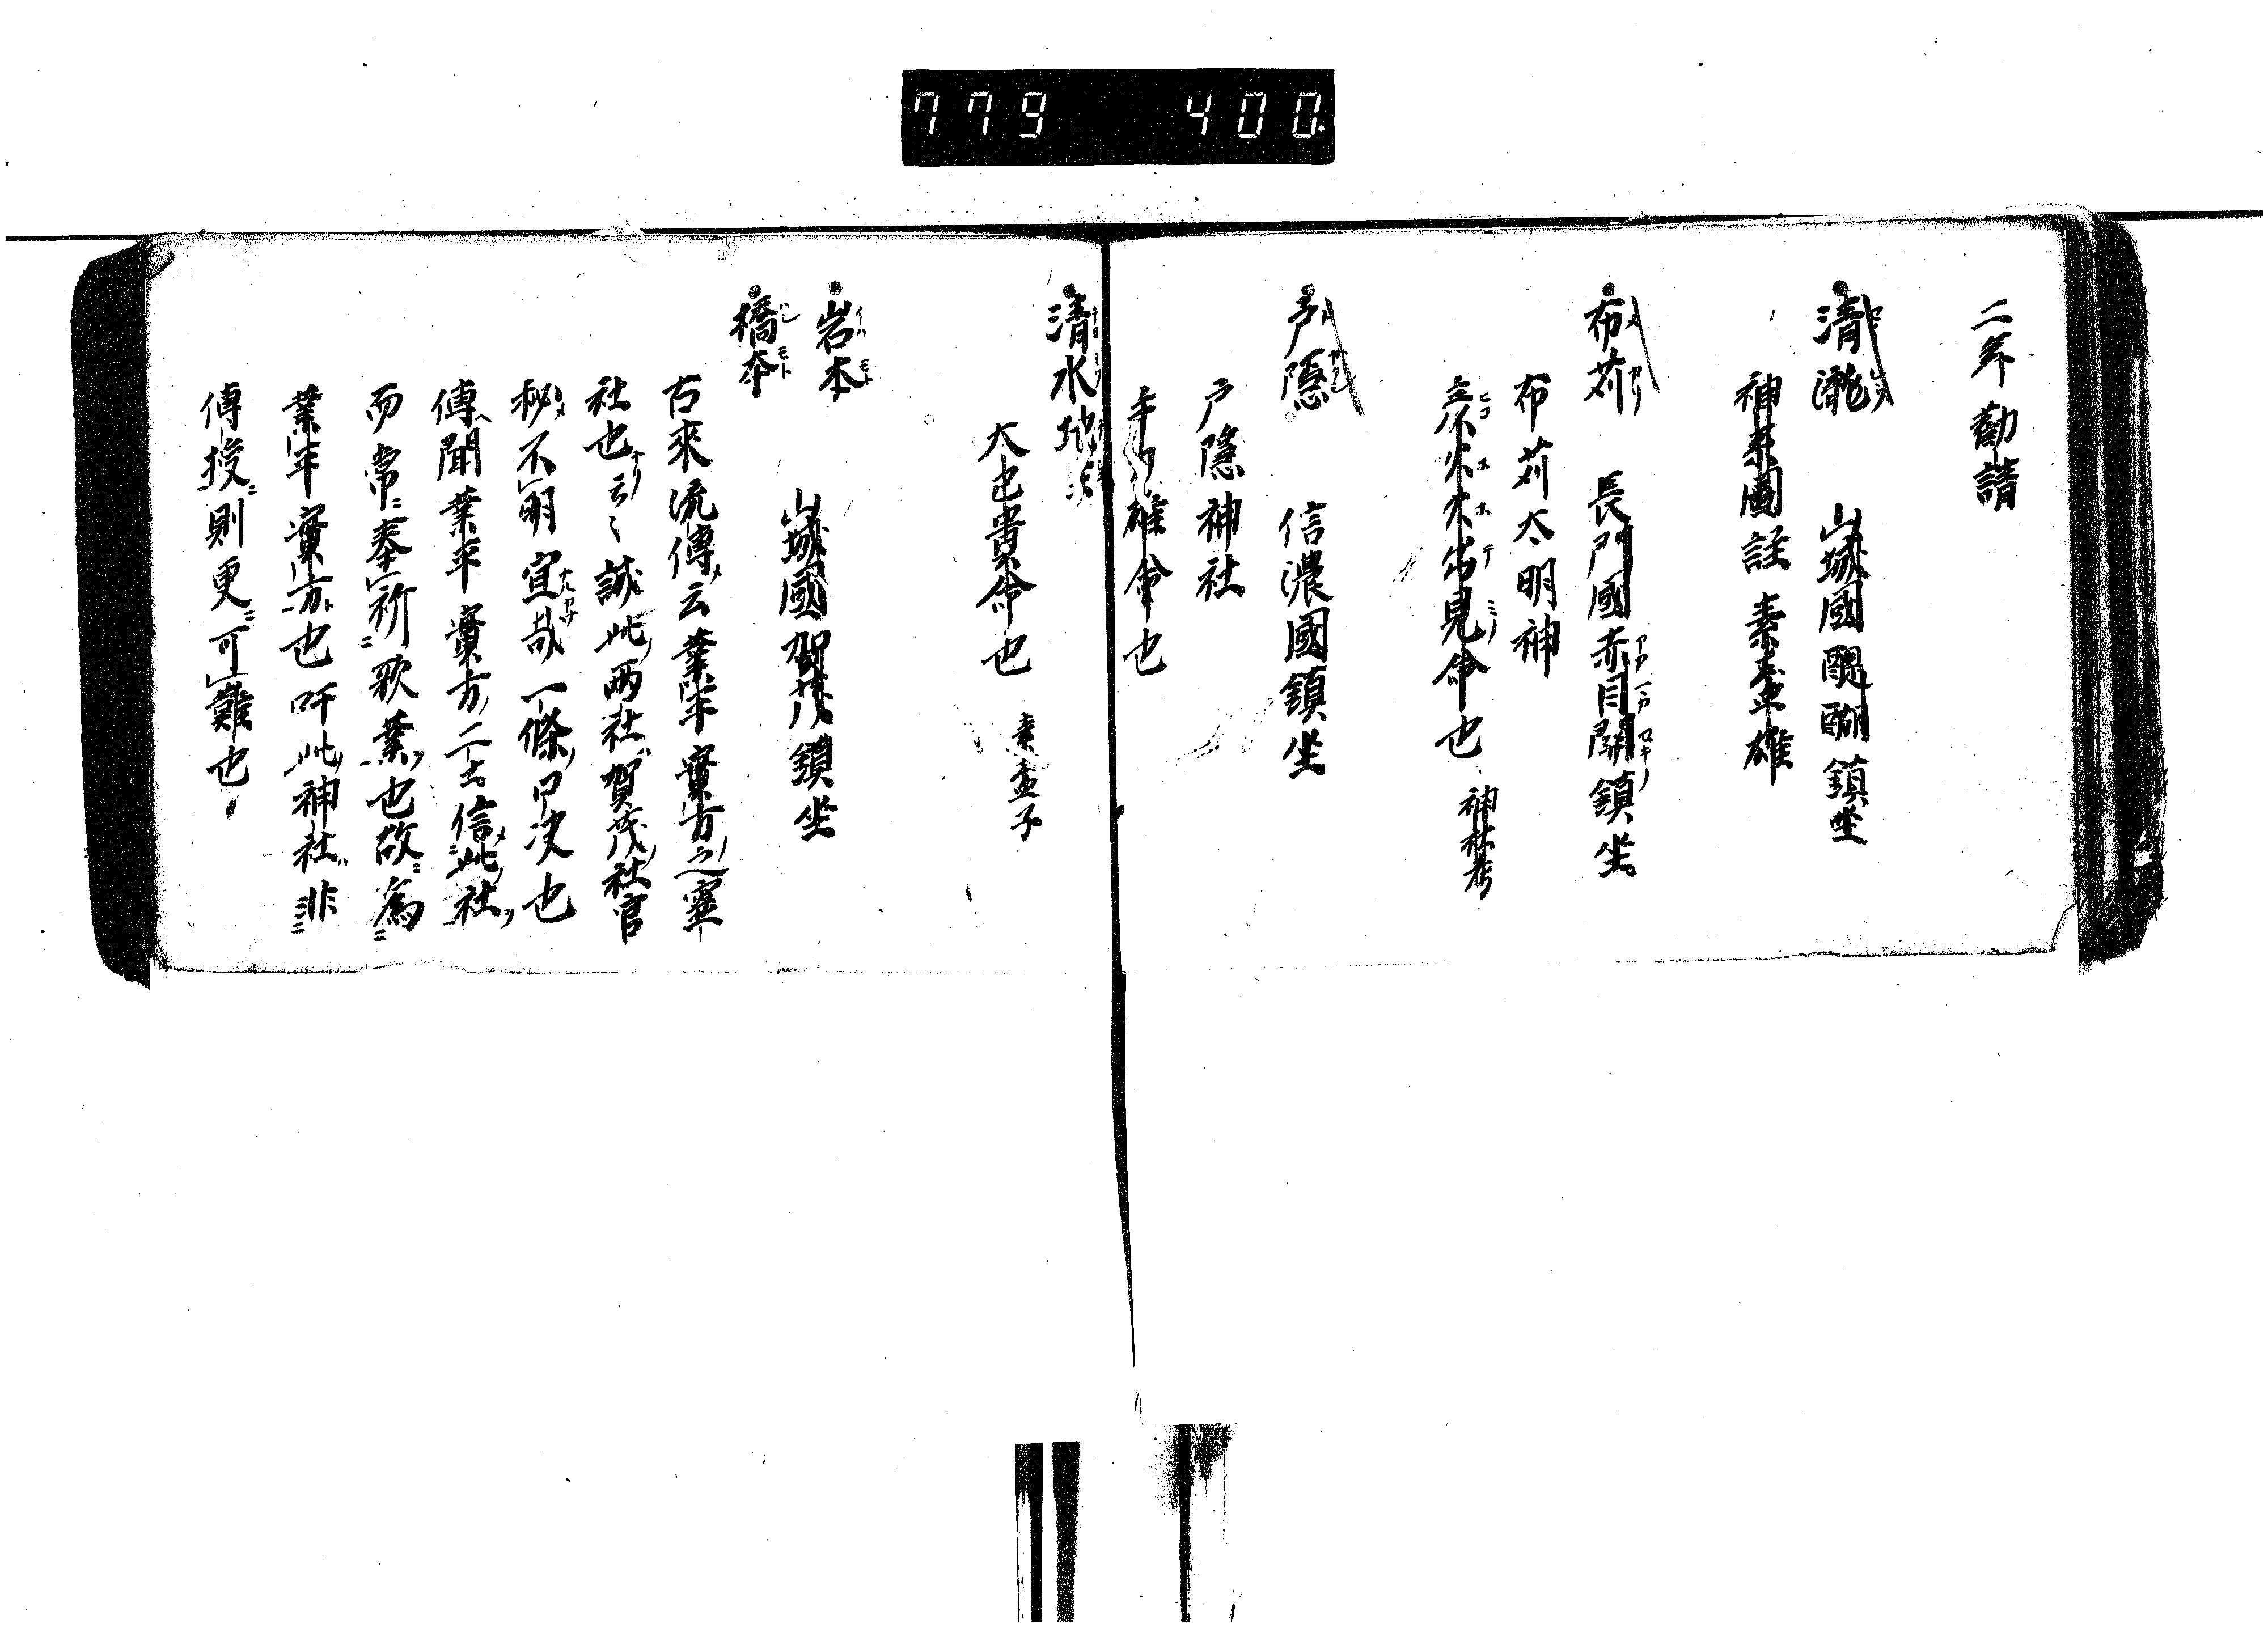 779 400.
二年勸請
清瀧 山城國醍醐鎮坐
神系圖註素盞雄
布苅 長門國赤目關鎮坐
布苅大明神
彦火々出見命也 神社考
戸隱 信濃國鎮坐
戸隱神社
手力雄命也
清水地
大己貴命也 素盞子
岩本 山城國賀茂鎮坐
橋本
古來流傳云業平實方之靈
社也云々誠此兩社賀茂社官
秘不明宜哉一條口决也
傳聞業平實方二士信此社
而常奉祈歌業也故為
業平實方也吁此神社非
傳授則更可難也